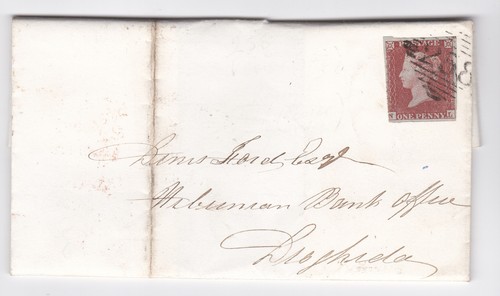 POSTAGE
ONE PENNY
Denis Ford Esqr
Hibernian Bank Office
Drogheda